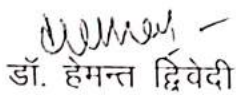 डॉ. हेमन्त द्विवेदी